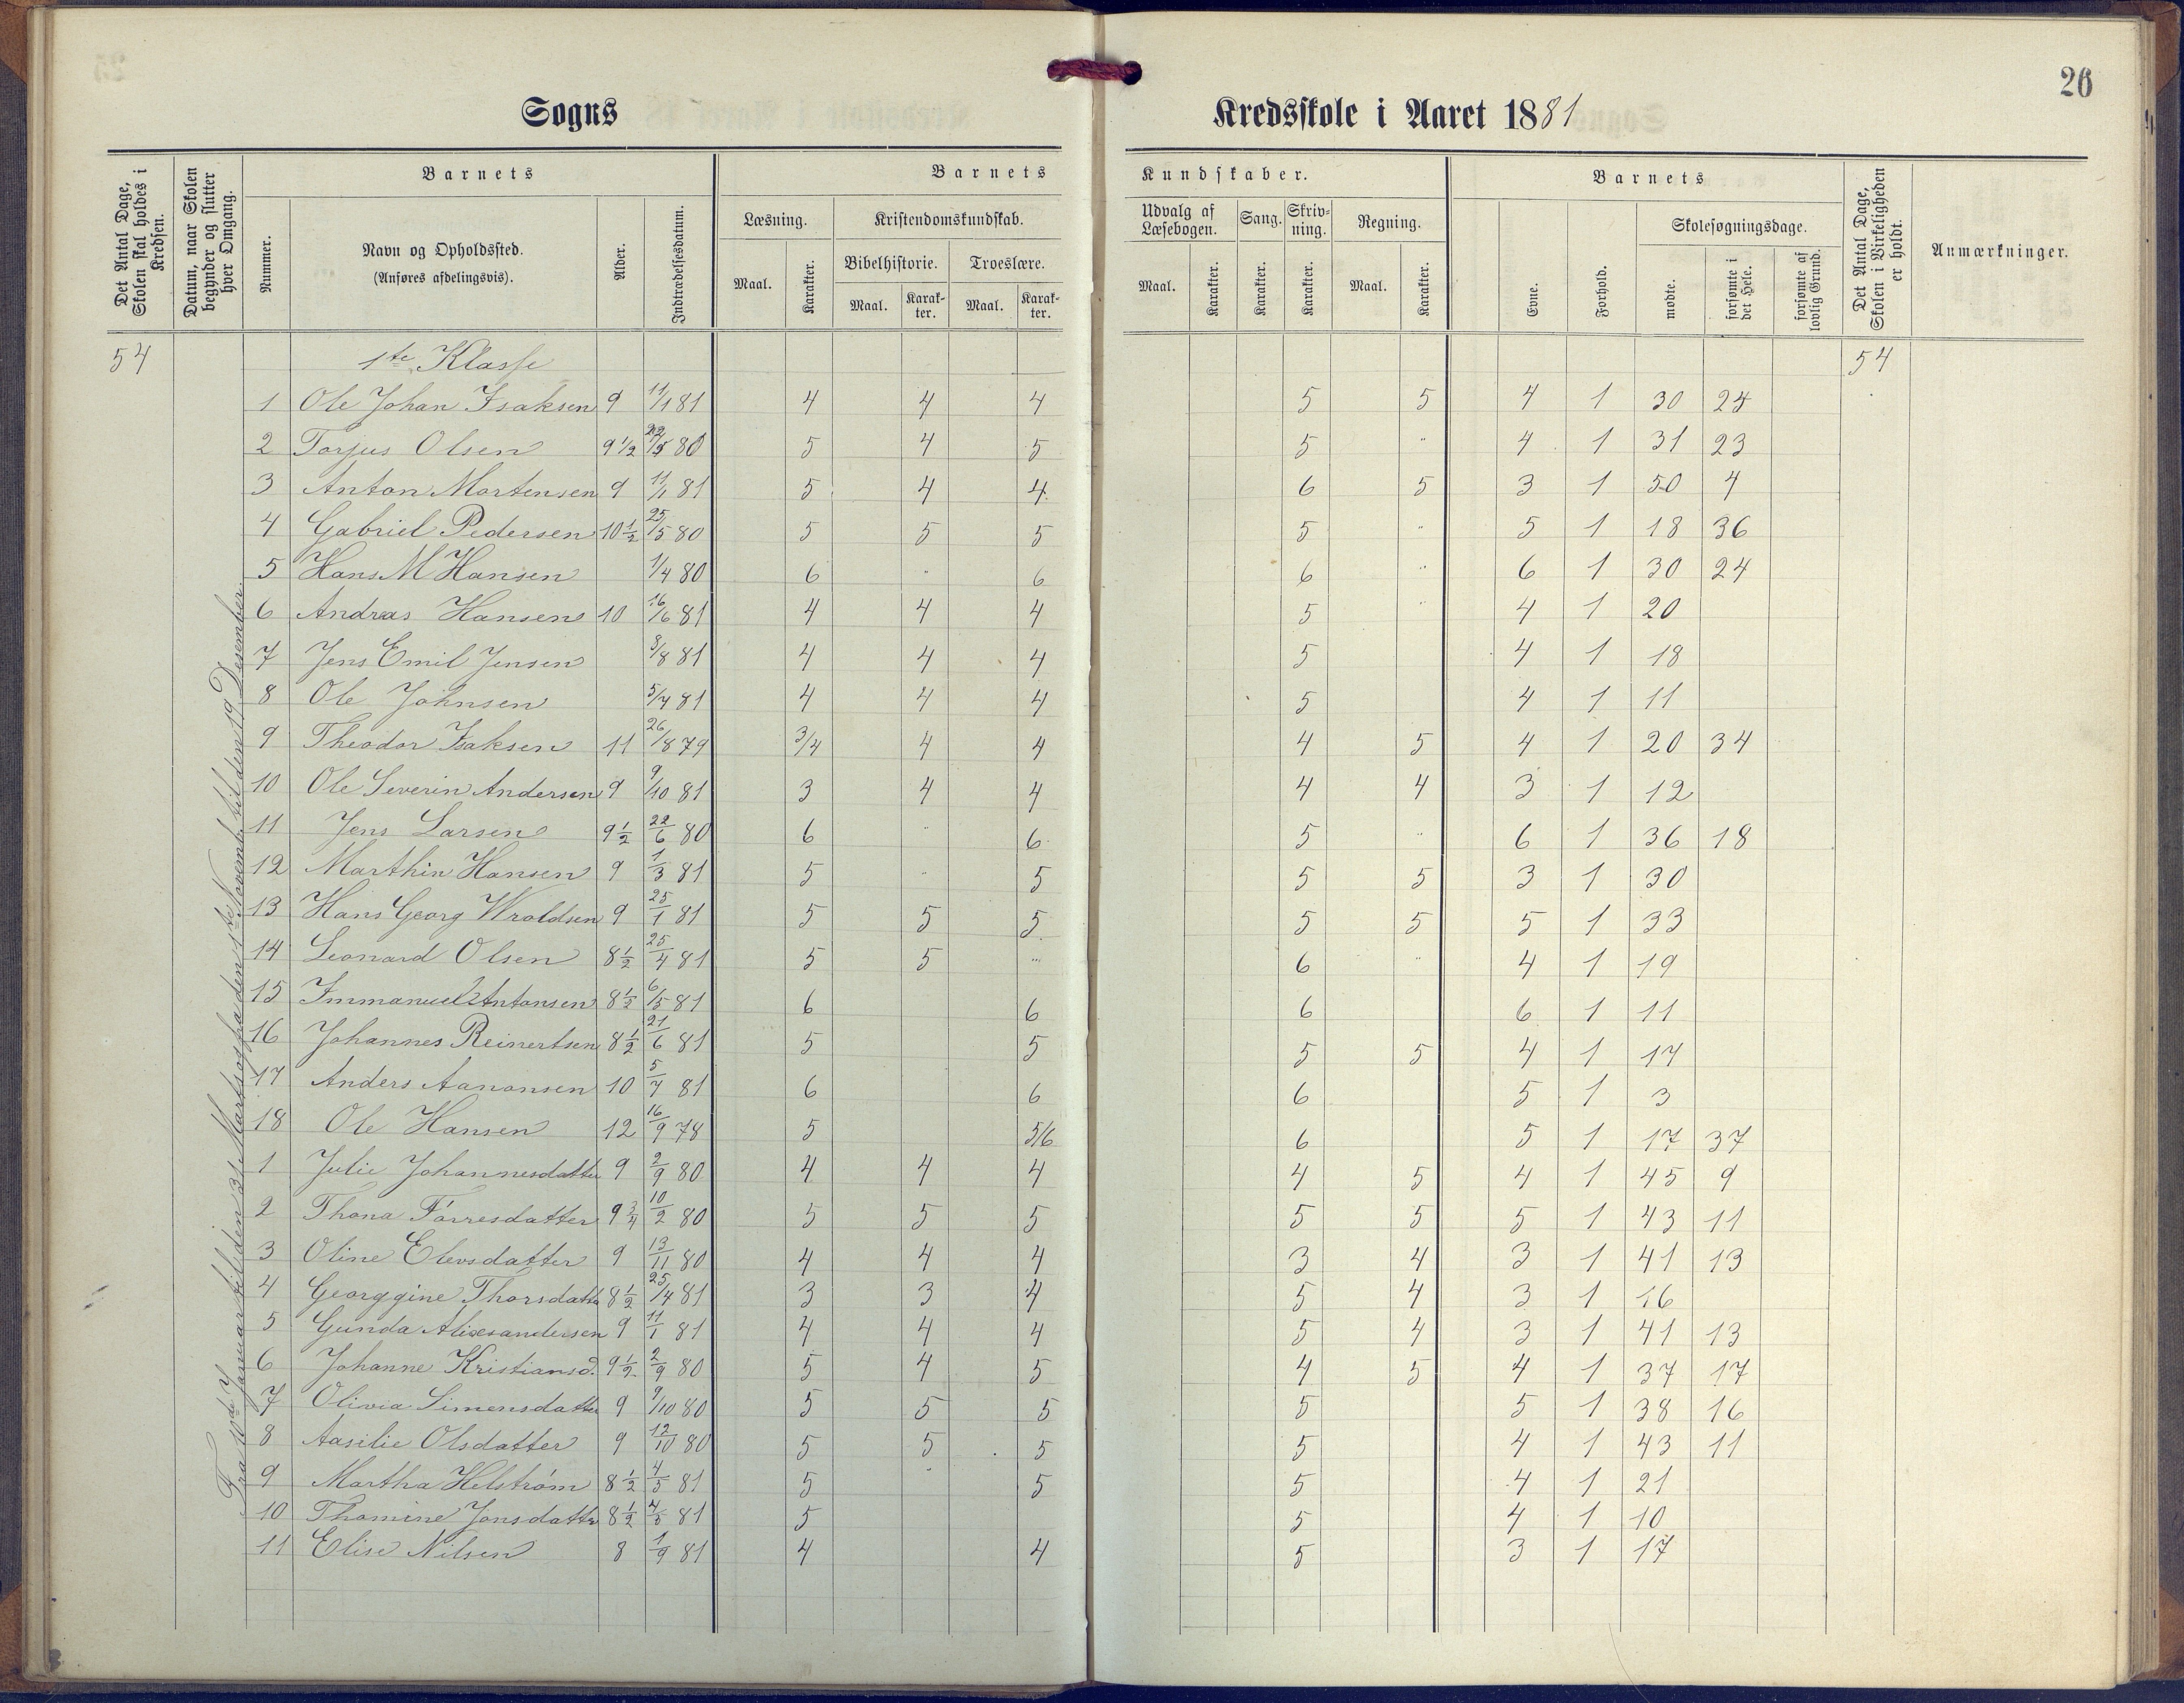 26
Sogns Kredsskole i Aaret 1881
Det Antal Dage, Skolen skal holdes i Kredsen.
Datum, naar Skolen begynder og slutter hver Omgang.
Barnets
Nummer.
Navn og Opholdssted.
(Anføres afdelingsvis).
Alder.
Indtrædelsesdatum.
Barnets Kundskaber.
Læsning.
Maal.
Karakter.
Kristendomskundskab.
Bibelhistorie.
Maal.
Karak-
ter.
Troeslære.
Maal.
Karak-
ter.
Udvalg af
Læsebogen.
Maal.
Karakter.
Sang.
Karakter.
Skriv-
ning.
Karakter.
Regning.
Maal.
Karakter.
Barnets
Evne.
Forhold.
Skolesøgningsdage.
mødte.
forsømte i det Hele.
forsømte af lovlig Grund.
Det Antal Dage, Skolen i Virkeligheden er holdt.
Anmærkninger.
54 1ste Klasse 54
Fra 10de Januar til den 31 Marts og fra den 1ste Novemb. til den 19 Desember.
1 Ole Johan Isaksen 9 11/1 81 4 4 4 5 5 4 1 30 24
2 Torjus Olsen 9 1/2 80 5 4 5 5 " 4 1 31 23
3 Anton Mortensen 9 11/1 81 5 4 4 6 5 3 1 50 4
4 Gabriel Pedersen 10 1/2 25/5 80 5 5 5 5 " 5 1 18 36
5 Hans M Hansen 1/4 80 6 " 6 6 " 6 1 30 24
6 Andreas Hansen 10 16/6 81 4 4 4 5 " 4 1 20
7 Jens Emil Jensen 8/8 81 4 4 4 5 4 1 18
8 Ole Johnsen 5/7 81 4 4 4 5 4 1 11
9 Theodor Isaksen 11 26/8 79 3/4 4 4 4 5 4 1 20 34
10 Ole Severin Andersen 9 9/10 81 3 4 4 4 4 3 1 12
11 Jens Larsen 9 1/2 22/6 80 6 " 6 5 " 6 1 36 18
12 Marthin Hansen 9 1/3 81 5 " 5 5 5 3 1 30
13 Hans Georg Wroldsen 9 25/1 81 5 5 5 5 5 5 1 33
14 Leonard Olsen 8 1/2 25/4 81 5 5 " 6 " 4 1 19
15 Immanuel Antonsen 8 1/2 6/5 81 6 6 6 6 1 11
16 Johannes Reinertsen 8 1/2 21/6 81 5 5 5 5 4 1 17
17 Anders Aanonsen 10 5/7 81 6 6 6 5 1 3
18 Ole Hansen 12 16/9 78 5 5/6 6 5 1 17 37
1 Julie Johannesdatter 9 2/9 80 4 4 4 4 5 4 1 45 9
2 Thona Törresdatter 9 3/4 10/2 80 5 5 5 5 5 5 1 43 11
3 Oline Elevsdatter 9 13/11 80 4 4 4 3 4 3 1 41 13
4 Georggine Thorsdatter 8 1/2 25/4 81 3 3 4 5 4 3 1 16
5 Gunda Alixsandersen 9 11/1 81 4 4 4 5 4 3 1 41 13
6 Johanne Kristiansd. 9 1/2 2/9 80 5 4 5 4 5 4 1 37 17
7 Olivia Simensdatter 9 9/10 80 5 5 5 5 5 1 38 16
8 Aasilie Olsdatter 9 12/10 80 5 5 5 5 4 1 43 11
9 Martha Helström 8 1/2 4/5 81 5 " 5 5 4 1 21
10 Thomine Jonsdatter 8 1/2 81 5 5 4 1 10
11 Elise Nilsen 8 1/9 81 4 4 5 3 1 17